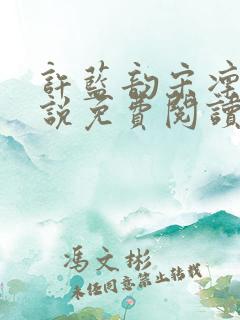 許藍韵宋凜
說免費閱讀
馮文彬
未經同意禁止轉載